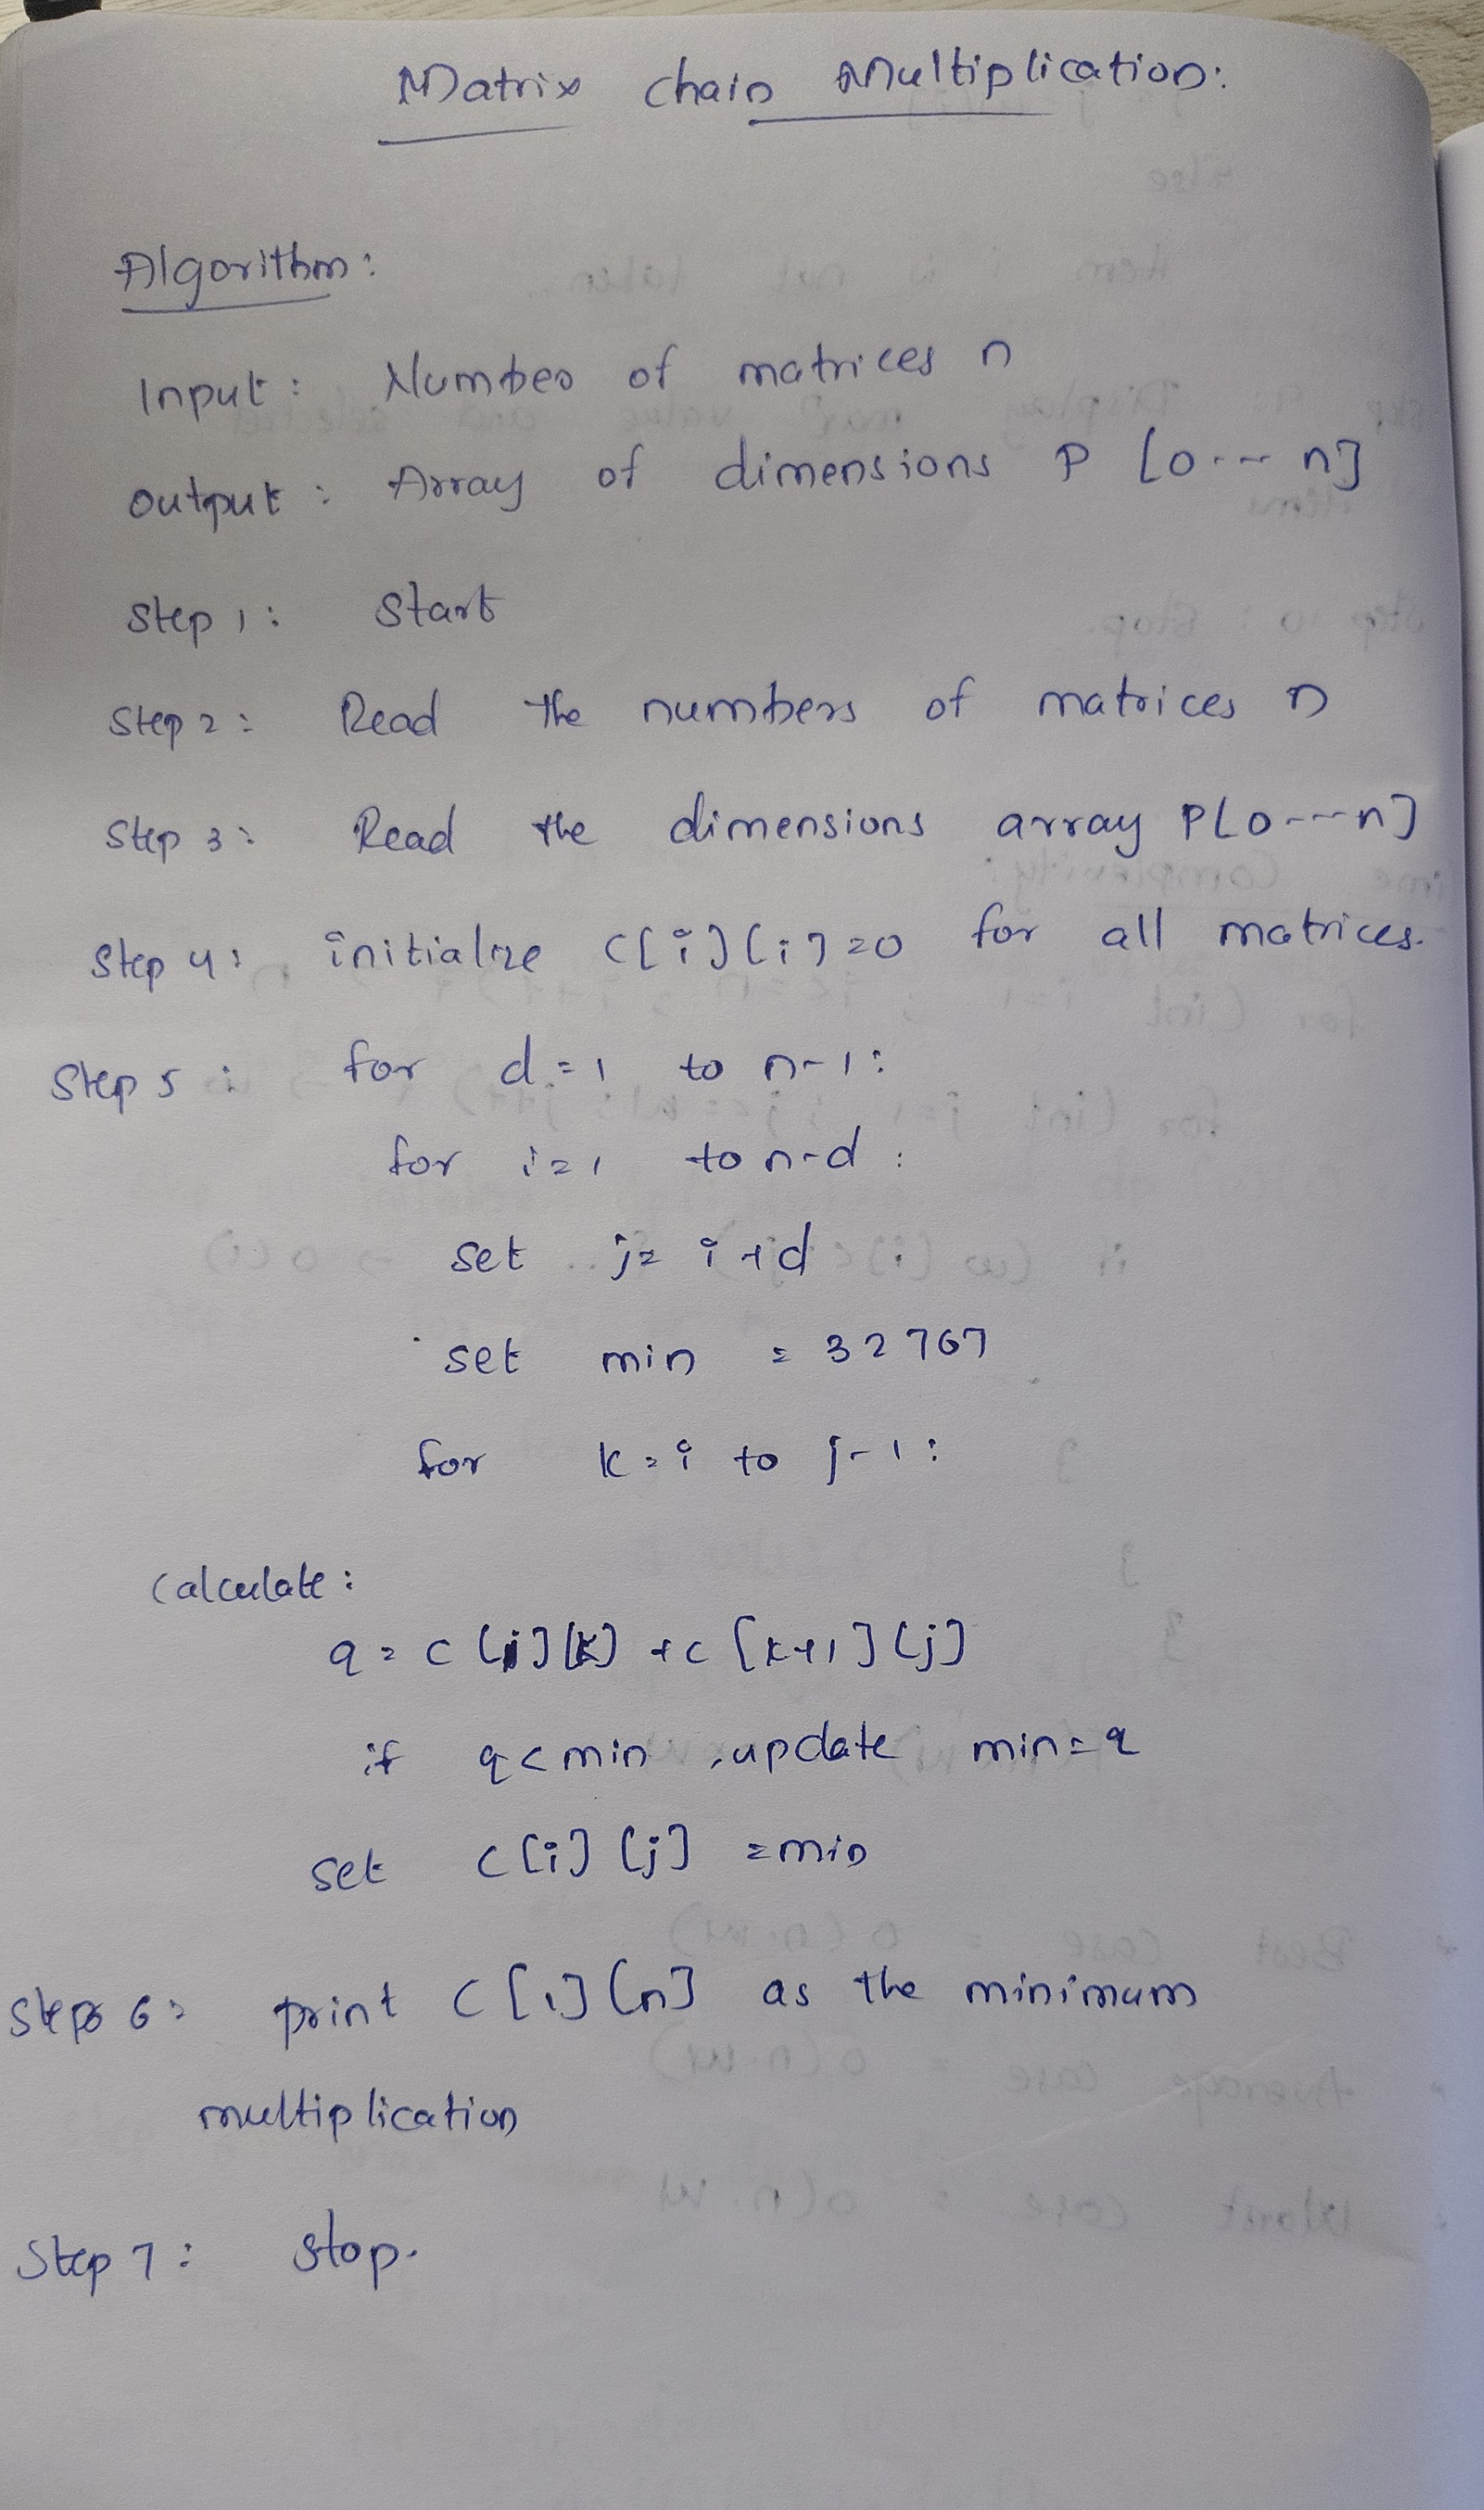 Matrix chain Multiplication:
Algorithm:
Input: Number of matrices n
output: Array of dimensions P [0---n]
Step 1: Start
Step 2: Read the numbers of matrices n
Step 3: Read the dimensions array P[0---n]
Step 4: initialize C[i][i]=0 for all matrices.
Step 5: for d=1 to n-1:
for i=1 to n-d:
set j=i+d
set min = 32767
for k=i to j-1:
Calculate:
q=c[i][k]+c[k+1][j]
if q<min, update min=q
set C[i][j] =min
Step 6: print C[1][n] as the minimum
multiplication
Step 7: stop.